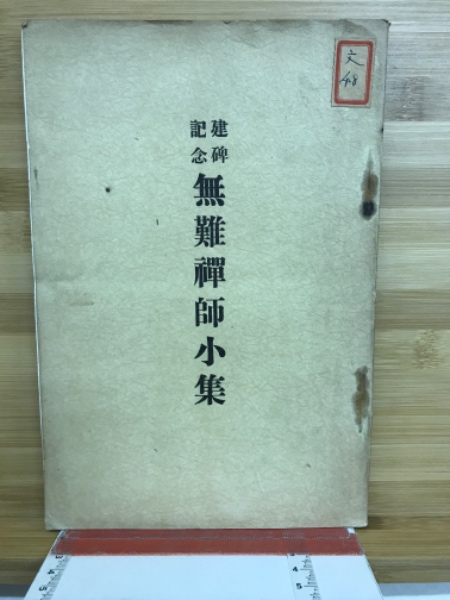 建碑
記念
無難禪師小集
文
48
3
4
5